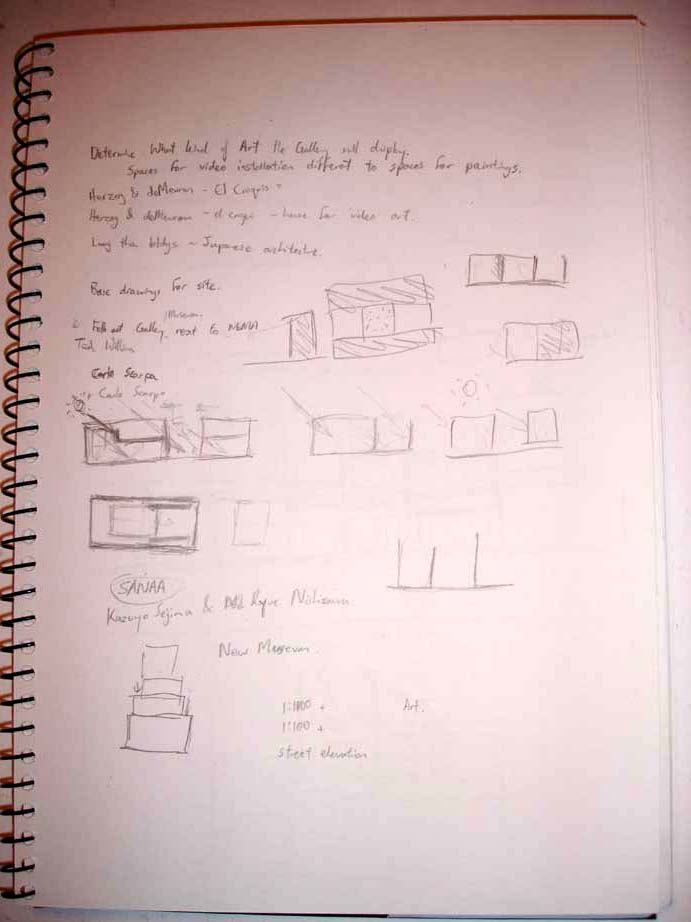 Determine What kind of Art the Gallery will display.
Spaces for video installation different to spaces for paintings.
Herzog & deMeuron - El Croquis
Herzog & deMeuron - el croqui - house for video art.
Long thin bldgs - Japanese architecture.
Base drawings for site.
Museum.
Folk art Gallery, next to MoMA
Tod William
Carlo Scarpa
Carlo Scarpa
SANAA
Kazuyo Sejima & Ryue Nishizawa
New Museum.
1:100 + Art.
street elevation